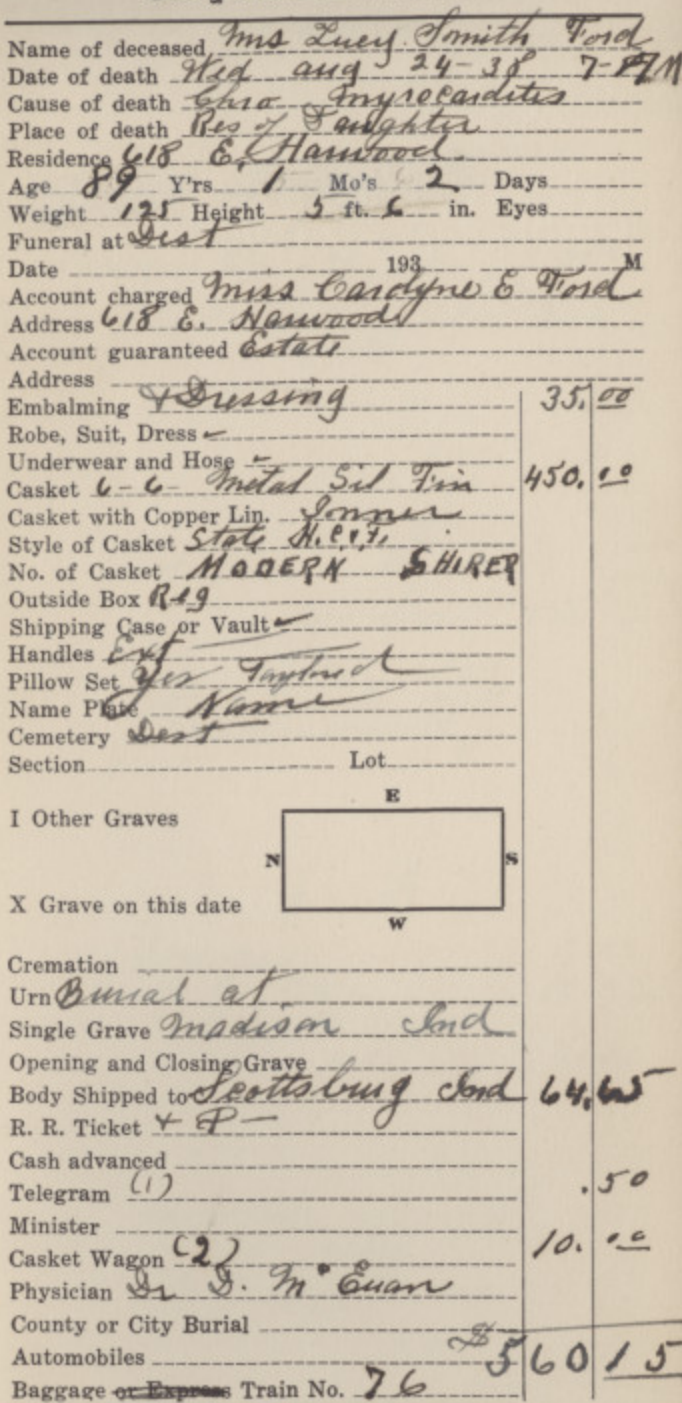 Name of deceased Mrs Lucy Smith Ford
Date of death Wed aug 24-38 7- PM
Cause of death Chro Myrocarditis
Place of death Res of Daughter
Residence 618 E. Harwood
Age 89 Y'rs 1 Mo's 2 Days
Weight 125 Height 5 ft. 6 in. Eyes
Funeral at Dest
Date 193 M
Account charged Miss Carolyne E Ford
Address 618 E. Harwood
Account guaranteed Estate
Address
Embalming & Dressing 35.00
Robe, Suit, Dress
Underwear and Hose
Casket 6-6- Metal Sil Fin 450.00
Casket with Copper Lin. Inner
Style of Casket State
No. of Casket MODERN SHIRER
Outside Box Reg
Shipping Case or Vault
Handles Ext
Pillow Set Yes Taylored
Name Plate Name
Cemetery Dest
Section Lot
E
I Other Graves
N S
X Grave on this date
W
Cremation
Urn Burial at
Single Grave Madison Ind
Opening and Closing Grave
Body Shipped to Scottsburg Ind 64.65
R. R. Ticket + P -
Cash advanced
Telegram (1) .50
Minister
Casket Wagon (2) 10.00
Physician Dr D. McEuan
County or City Burial
Automobiles $560 15
Baggage or Express Train No. 76